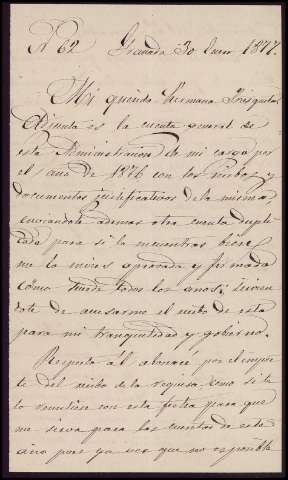 Nº 62. Granada 30 Enero 1877.
Mi querida hermana
Adjunta es la cuenta general de
esta Administracion de mi cargo por
el año de 1876 con los recibos y
documentos justificativos de la misma,
enviandote ademas otra cuenta dupli-
cada para si la encuentras bien
me la mires aprovada y firmada
como todos los años; sirvien
dote de acusarme el recibo de esta
para mi tranquilidad y gobierno.
Respecto al por el impor
te del recibo de la requisa, como si te
lo remitiese con esta fecha para que
me sirva para las cuentas de este
año pues ya veo que no es posible